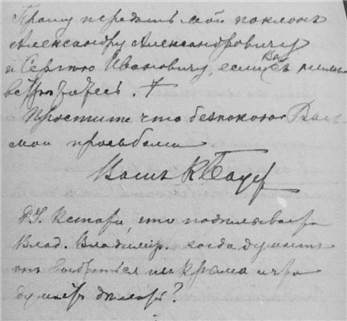 Прошу передать мой поклонъ
Александру Александровичу
и Сергѣю Ивановичу, если Вы съ ними
встрѣтитесь.
Простите что безпокою Васъ
моими просьбами
Вашъ К Бауер
P.S. Кстати, что подѣлываетъ
Влад. Владимір. когда думаетъ
онъ изъ Крыма и что
думаетъ дѣлать?